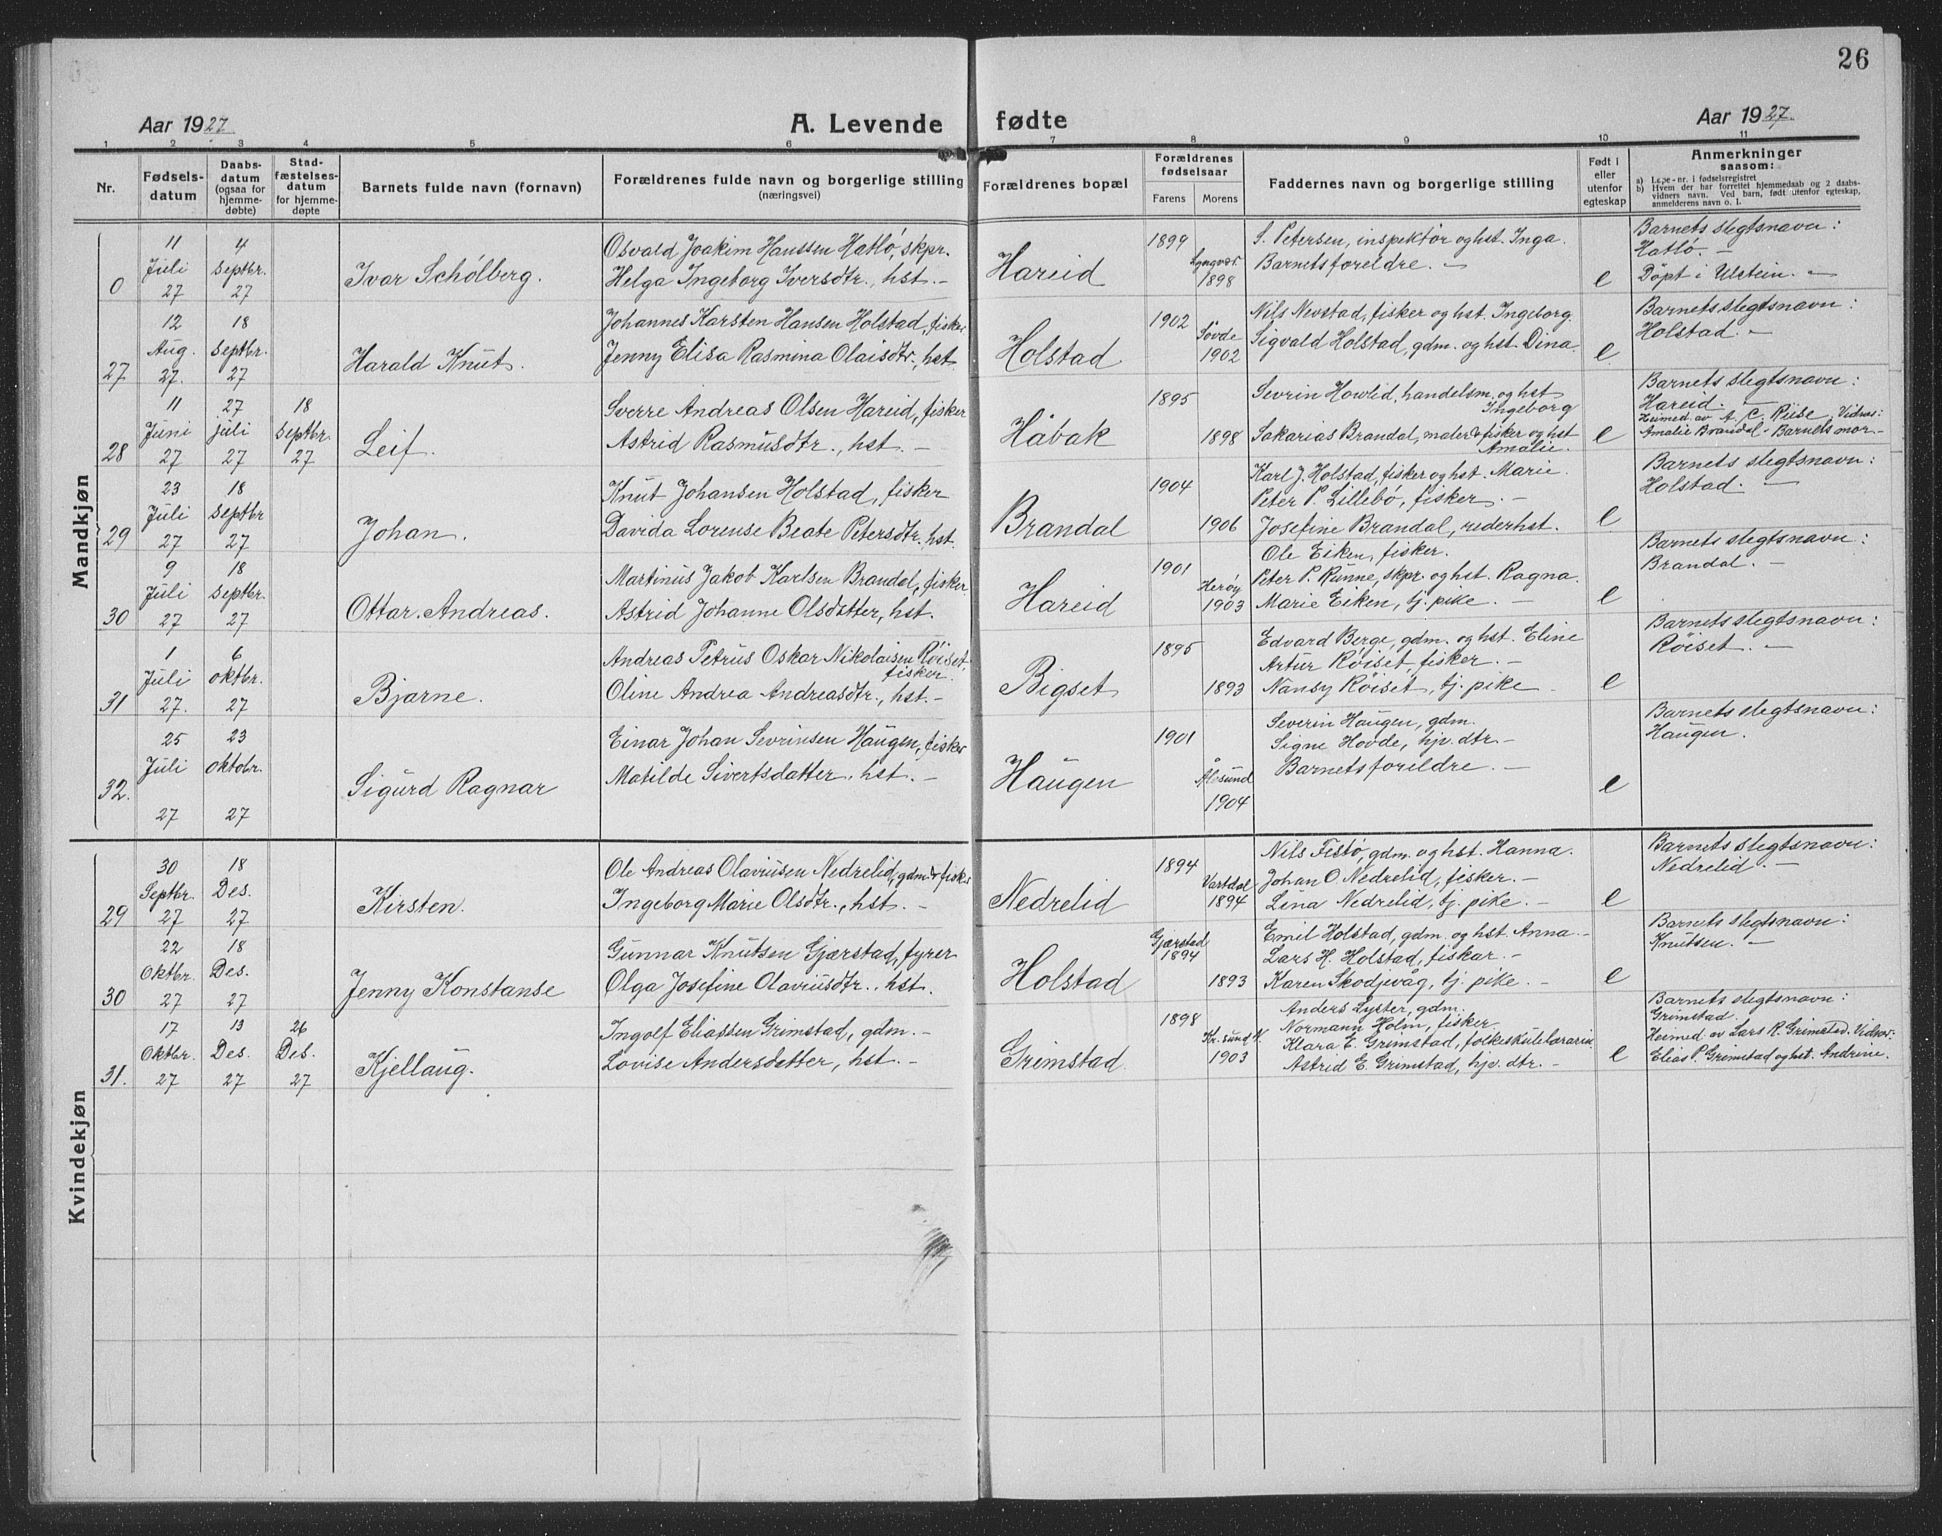 26
Aar 1927.
A. Levende fødte
Aar 1927.
1 2 3 4 5 6 7 8 9 10 11
Nr.
Fødsels-
datum
Daabs-
datum
(ogsaa for
hjemme-
døbte)
Stad-
fæstelses-
datum
for hjemme-
døpte
Barnets fulde navn (fornavn)
Forældrenes fulde navn og borgerlige stilling
(næringsvei)
Forældrenes bopæl
Forældrenes
fødselsaar
Farens Morens
Faddernes navn og borgerlige stilling
Født i
eller
utenfor
egteskap
Anmerkninger
saasom:
a) Løpe-nr. i fødselsregistret
b) Hvem der har forrettet hjemmedaab og 2 daabs-
vidners navn. Ved barn, født utenfor egteskap,
anmelderens navn o. l.
Mandkjøn
0
11
Juli
27
4
Septbr.
27
Ivar Schölberg.
Osvald Joakim Hanssen Hatlö, skpr.
Helga Ingeborg Iversdtr., hst.-
Hareid
1899
1898
S. Petersen, inspektör og hst. Inga.
Barnetsforeldre. -
e
Barnets slegtsnavn:
Hatlö. -
Döpt i Ulstein. -
27
12
Aug.
27.
18
Septbr.
27
Harald Knut.
Johannes Karsten Hansen Holstad, fisker
Jenny Elisa Rasmina Olaisdtr., hst.
Holstad
1902
Søvde
1902
Nils Nevstad, fisker og hst. Ingeborg.
Sigvald Holstad, gdm. og hst. Dina.
e
Barnets slegtsnavn:
Holstad. -
28
11
Juni
27
27
juli
27
18
Septbr.
27
Leif.
Sverre Andreas Olsen Hareid, fisker
Astrid Rasmusdtr., hst. -
Håbak
1895
1898
Sevrin Howlid, handelsm. og hst
Ingeborg
Sakarias Brandal, maler & fisker og hst
Amalie.
e
Barnets slegtsnavn:
Hareid. -
Heimed. av A. C. Riise. Vidns:
Amalie Brandal - Barnets mor -
29
23
Juli
27
18
Septbr
27
Johan.
Knut Johansen Holstad, fisker
Davida Lorense Beate Petersdtr. hst.
Brandal
1904
1906
Karl J. Holstad, fisker og hst. Marie.
Peter P. Lillebö, fisker. -
Josefine Brandal, rederhst.
e
Barnets slegtsnavn:
Holstad. -
30
9
Juli
27
18
Septbr.
27
Ottar. Andreas.
Martinus Jakob Karlsen Brandal, fisker
Astrid Johanne Olsdatter, hst.
Hareid
1901
Herøy
1903
Ole Eiken, fisker.
Peter P. Runne, skpr. og hst. Ragna.
Marie Eiken, tj. pike. -
e
Barnets slegtsnavn:
Brandal. -
31
1
Juli
27.
6
oktbr.
27
Bjarne.
Andreas Petrus Oskar Nikolaisen Röiset,
fisker.
Oline Andrea Andreasdtr., hst. -
Bigset
1895
1893
Edvard Berge, gdm. og hst. Eline
Artur Röiset, fisker. -
Nansy Röiset, tj. pike -
e
Barnets slegtsnavn:
Röiset. -
32.
25
Juli
27
23
oktobr.
27
Sigurd Ragnar
Einar Johan Sevrinsen Haugen, fisker
Matilde Sivertsdatter, hst. -
Haugen
1901
Ålesund
1904
Severin Haugen, gdm.
Signe Hovde, hjv. dtr. -
Barnetsforeldre. -
e
Barnets slegtsnavn:
Haugen.
Kvindekjøn
29
30
Septbr.
27
18
Des.
27
Kirsten.
Ole Andreas Olaviusen Nedrelid, gdm & fisker
Ingeborg Marie Olsdtr., hst. -
Nedrelid
1894
Vartdal
1894
Nils Festö, gdm. og hst. Hanna.
Johan O. Nedrelid, fisker. -
Lina Nedrelid, tj. pike. -
e
Barnets slegtsnavn:
Nedrelid -
30
22
Oktbr.
27
18
Des.
27
Jenny Konstanse
Gunnar Knutsen Gjærstad, fyrer
Olga Josefine Olaviusdtr., hst.
Holstad
Gjærstad
1894
1893
Emil Holstad, gdm. og hst. Anna. -
Lars H. Holstad, fiskar. -
Karen Skodjevåg, tj. pike. -
e
Barnets slegtsnavn:
Knutsen. -
31.
17
Oktbr.
27
13
Des.
27
26
Des.
27
Kjellaug.
Ingolf Eliassen Grimstad, gdm. -
Lovise Andersdatter, hst. -
Grimstad
1898
Kr. sund N.
1903
Anders Lyster, gdm.
Normann Holm, fisker.
Klara E. Grimstad, folkeskulelærarin.
Astrid E. Grimstad, hjv. dtr. -
e
Barnets slegtsnavn:
Grimstad.
Heimed av Lars R. Grimstad. Vidner:
Elias P. Grimstad og hst. Andrine.